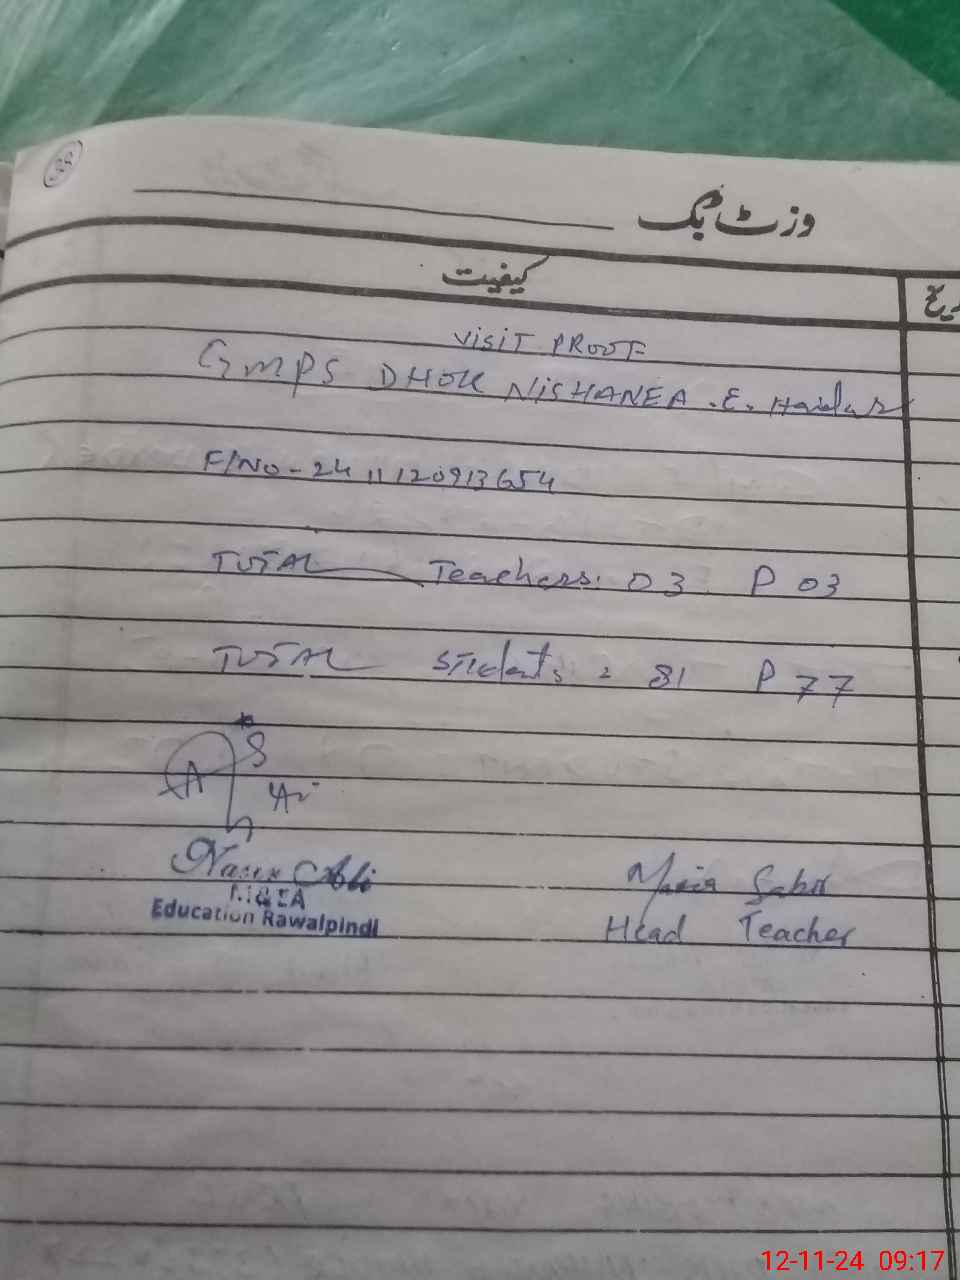 38
وزٹ بک
کیفیت
VISIT PROOF
GMPS DHOK NISHANEA .E. Haidar
F/NO - 24 11 120913654
TOTAL Teachers: 03 P 03
TOTAL Students: 81 P 77
Ali
M&EA
Education Rawalpindi
Head Teacher
12-11-24 09:17